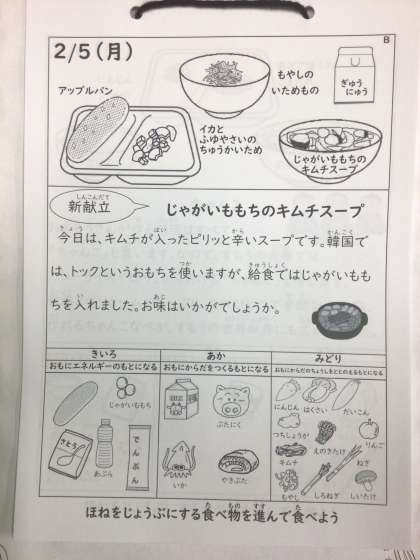 B
2/5(月)
アップルパン
もやしの
いためもの
ぎゅう
にゅう
イカと
ふゆやさいの
ちゅうかいため
じゃがいももちの
キムチスープ
新献立
しんこんだて
じゃがいももちのキムチスープ
今日は、キムチが入ったピリッと辛いスープです。韓国で
きょう はい から かんこく
は、トックというおもちを使いますが、給食ではじゃがいもも
つか きゅうしょく
ちを入れました。お味はいかがでしょうか。
い あじ
きいろ
おもにエネルギーのもとになる
あか
おもにからだをつくるもとになる
みどり
おもにからだのちょうしをととのえるもとになる
じゃがいももち
さとう
あぶら
でんぷん
ぶたにく
いか
やきぶた
にんじん
はくさい
だいこん
つちしょうが
えのきたけ
りんご
キムチ
ねぎ
もやし
しろねぎ
しいたけ
ほねをじょうぶにする食べ物を進んで食べよう
た もの すす た